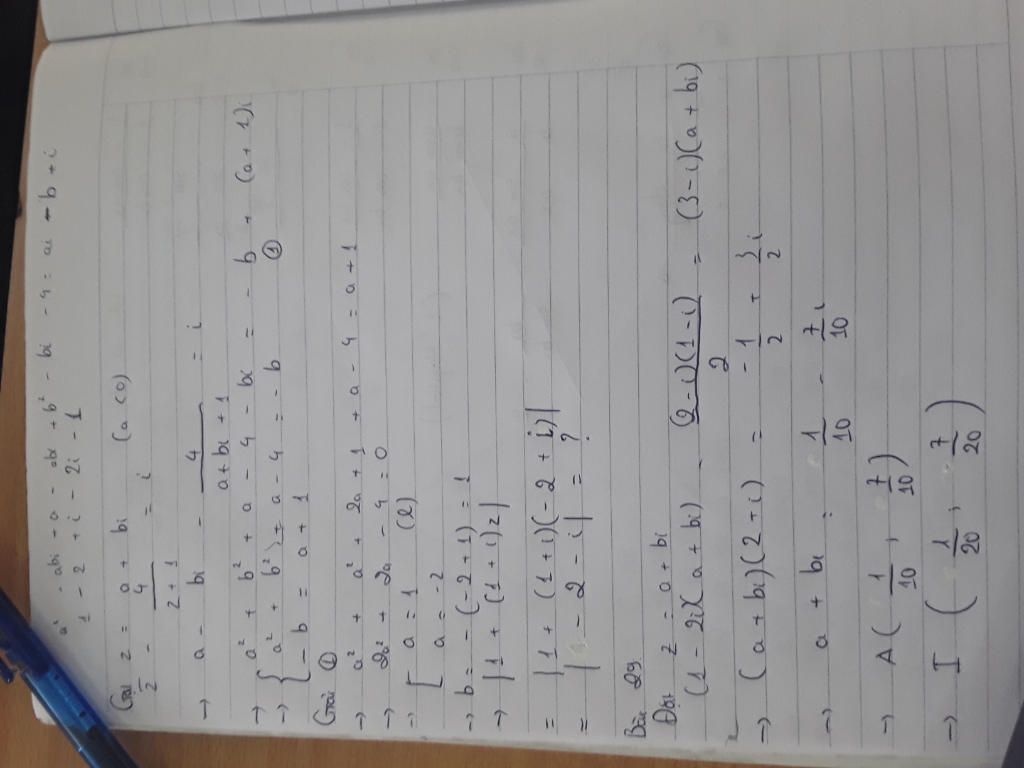 a² - abi + a - abi + b² - bi - 4 = ai - b + i
1 - 2 + i - 2i - 1
Gọi z = a + bi (a < 0)
z̅ - 4/(z + 1) = i
→ a - bi - 4/(a + bi + 1) = i
→ a² + b² + a - 4 - bi = - b + (a + 1)i
→ { a² + b² + a - 4 = - b ①
- b = a + 1
Giải ①
→ a² + a² + 2a + 1 + a - 4 = a + 1
→ 2a² + 2a - 4 = 0
→ [ a = 1 (l)
a = -2
→ b = - (-2 + 1) = 1
→ |1 + (1 + i)z|
= |1 + (1 + i)(-2 + i)|
= | - 2 - i| = ?
Bài 29
Đặt z = a + bi
(1 - 2i)(a + bi) - (2 - i)(1 - i)/2 = (3 - i)(a + bi)
→ (a + bi)(2 + i) = - 1/2 + 3/2 i
→ a + bi = 1/10 - 7/10 i
→ A(1/10 ; 7/10)
→ I (1/20 ; 7/20)